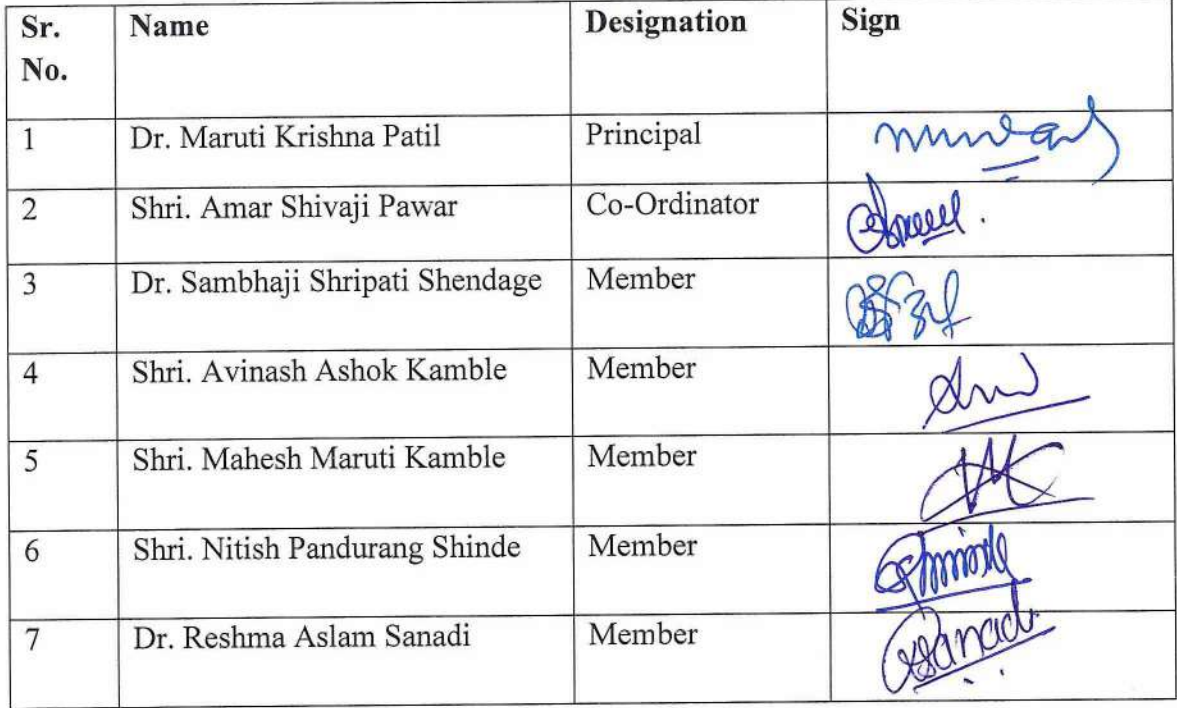 Sr. No. Name Designation Sign
1 Dr. Maruti Krishna Patil Principal
2 Shri. Amar Shivaji Pawar Co-Ordinator
3 Dr. Sambhaji Shripati Shendage Member
4 Shri. Avinash Ashok Kamble Member
5 Shri. Mahesh Maruti Kamble Member
6 Shri. Nitish Pandurang Shinde Member
7 Dr. Reshma Aslam Sanadi Member